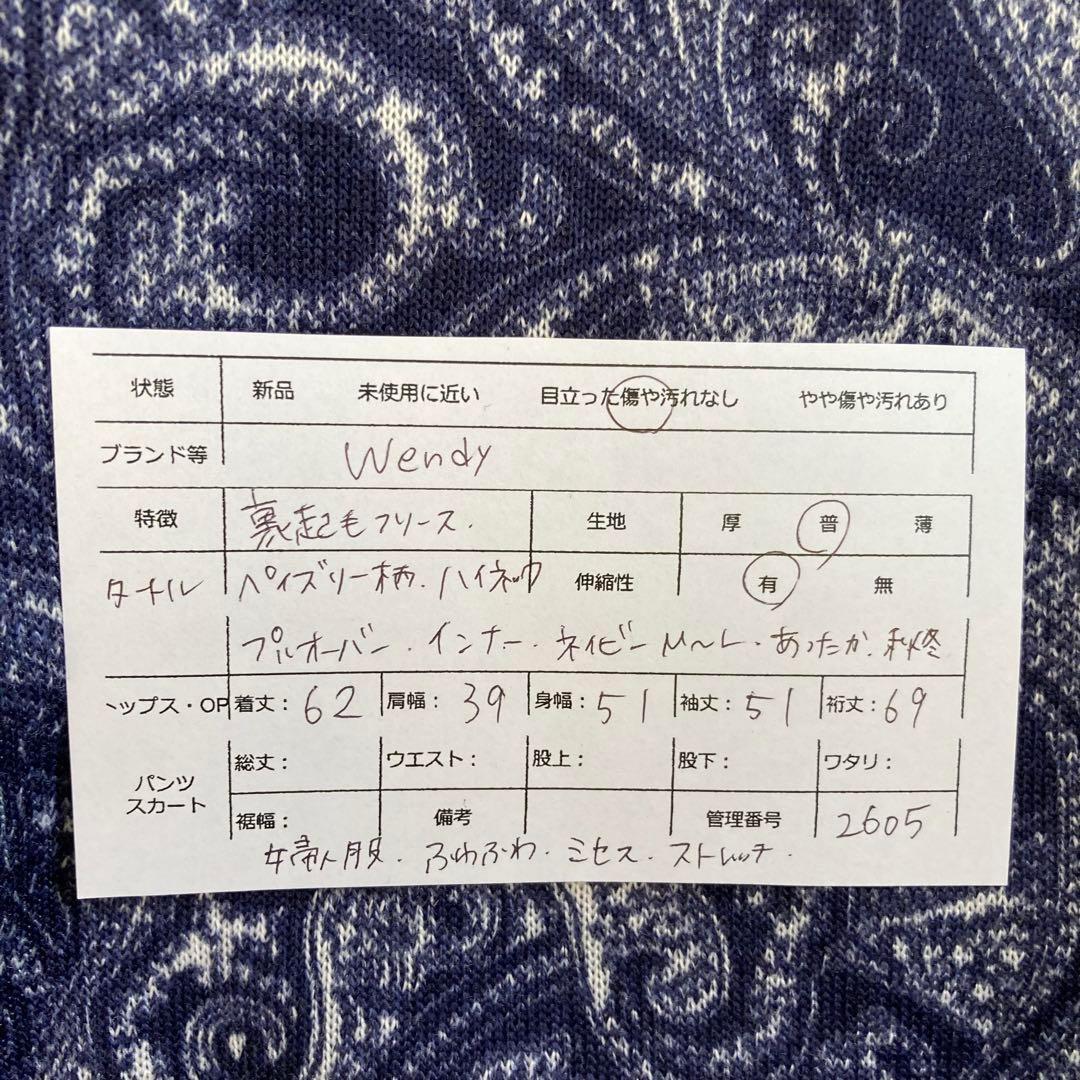 状態 新品 未使用に近い 目立った傷や汚れなし やや傷や汚れあり
ブランド等 Wendy
特徴 裏起毛フリース. 生地 厚 普 薄
タートル ペイズリー柄.ハイネック 伸縮性 有 無
プルオーバー.インナー.ネイビー M〜L.あったか.秋冬
トップス・OP 着丈:62 肩幅:39 身幅:51 袖丈:51 裄丈:69
パンツ スカート 総丈: ウエスト: 股上: 股下: ワタリ:
裾幅: 備考 管理番号 2605
婦人服.ふわふわ.ミセス.ストレッチ.